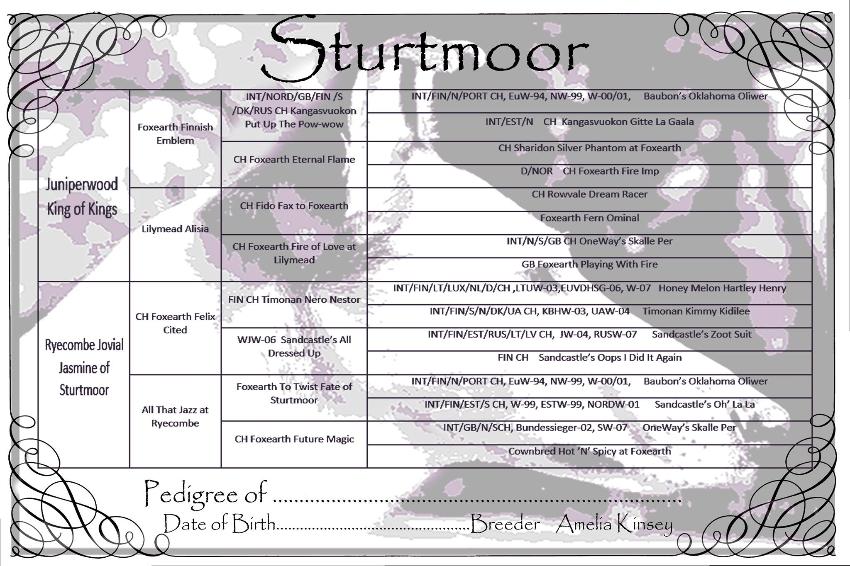 Sturtmoor
Juniperwood
King of Kings
Foxearth Finnish
Emblem
INT/NORD/GB/FIN /S
/DK/RUS CH Kangasvuokon
Put Up The Pow-wow
INT/FIN/N/PORT CH, EuW-94, NW-99, W-00/01, Baubon's Oklahoma Oliwer
INT/EST/N CH Kangasvuokon Gitte La Gaala
CH Foxearth Eternal Flame
CH Sharidon Silver Phantom at Foxearth
D/NOR CH Foxearth Fire Imp
Lilymead Alisia
CH Fido Fax to Foxearth
CH Rowvale Dream Racer
Foxearth Fern Ominal
CH Foxearth Fire of Love at
Lilymead
INT/N/S/GB CH OneWay's Skalle Per
GB Foxearth Playing With Fire
Ryecombe Jovial
Jasmine of
Sturtmoor
CH Foxearth Felix
Cited
FIN CH Timonan Nero Nestor
INT/FIN/LT/LUX/NL/D/CH ,LTUW-03,EUVDHSG-06, W-07 Honey Melon Hartley Henry
INT/FIN/S/N/DK/UA CH, KBHW-03, UAW-04 Timonan Kimmy Kidilee
WJW-06 Sandcastle's All
Dressed Up
INT/FIN/EST/RUS/LT/LV CH, JW-04, RUSW-07 Sandcastle's Zoot Suit
FIN CH Sandcastle's Oops I Did It Again
All That Jazz at
Ryecombe
Foxearth To Twist Fate of
Sturtmoor
INT/FIN/N/PORT CH, EuW-94, NW-99, W-00/01, Baubon's Oklahoma Oliwer
INT/FIN/EST/S CH, W-99, ESTW-99, NORDW-01 Sandcastle's Oh' La La
CH Foxearth Future Magic
INT/GB/N/SCH, Bundessieger-02, SW-07 OneWay's Skalle Per
Cownbred Hot 'N' Spicy at Foxearth
Pedigree of ..............................................................
Date of Birth..........................................Breeder Amelia Kinsey